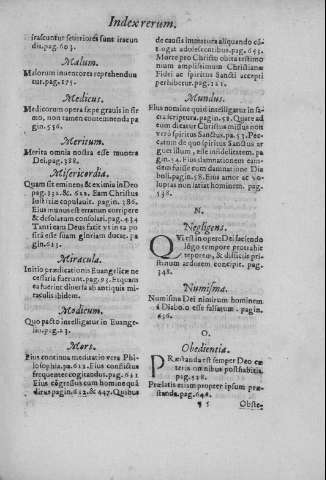 Index rerum.
irascuntur seueriores sunt iracun
diæ.pag.603.
Malum.
Malorum inuentores reprehendun
tur.pag.175.
Medicus.
Medicorum opera sæpe grauis in fir
mo, non tamen contemnenda pa
gin.556.
Meritum.
Merita omnia nostra esse munera
Dei.pag.388.
Misericordia.
Quam sit eminens & eximia in Deo
pag.132. & 621. Eam Christus
iustitiæ copulauit. pagin. 386.
Eius munus est erratum corripere
& desolatum consolari.pag. 434
Tantireàm Deus facit vt in ea po
sita esse suam gloriam ducat. pa
gin.623.
Miracula.
Initio prædicationis Euangelicæ ne
cessaria fuerunt.pag.93. Et quam
ea fuerint diuersa ab antiquis mi-
raculis ibidem.
Modicum.
Quo pacto intelligatur in Euange-
lio.pag.13.
Mors.
Eius continua meditatio vera Phi
losophia.pa.612. Eius conflictus
frequenter cogitandus.pag.621
Eius cōgressus cum homine quā
dirus pagin.612.& 447. Quibus
de causis immatura aliquando cō-
tingat adolescentibus.pag.653.
Morte pro Christo obita testimo
nium amplissimum Christianæ
Fidei ac spiritus Sancti accepti
perhibetur.pag.121.
Mundus.
Eius nomine quid intelligatur in sa-
cra scriptura.pagin.52. Quare ad
eum dicatur Christus missus non
verò spiritus Sanctus.pa.53. Pec-
catum de quo spiritus Sanctus ar
guet illum , esse infidelitatem. pa
gin.54. Eius damnationem eam-
dem fuisse cum damnatione Dia
boli.pagin.58. Eius amor ac vo-
luptas non satiat hominem. pag.
538.
N.
Negligens.
QVi est in opere Dei faciendo
longo tempore protrahit
teporem, & difficile pri-
stinum ardorem concipit. pag.
348.
Numisma.
Numisma Dei nimirum hominem
à Diabolo esse falsatum . pagin.
636.
O.
Obedientia.
PRæstanda est semper Deo cæ
teris omnibus posthabitis.
pag.528.
Prælatis etiam propter ipsum præ-
standa.pag.640.
¶ 5
Obste-